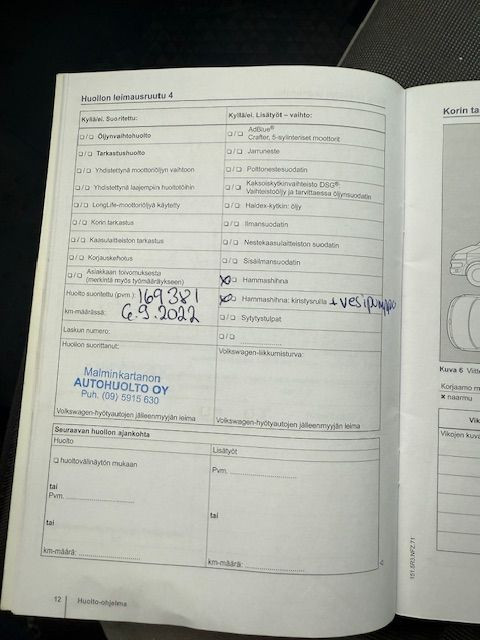 Huollon leimausruutu 4
Kyllä/ei. Suoritettu:
❏ / ❏ Öljynvaihtohuolto
❏ / ❏ Tarkastushuolto
❏ / ❏ Yhdistettynä moottoriöljyn vaihtoon
❏ / ❏ Yhdistettynä laajempiin huoltotöihin
❏ / ❏ LongLife-moottoriöljyä käytetty
❏ / ❏ Korin tarkastus
❏ / ❏ Kaasulaitteiston tarkastus
❏ / ❏ Korjauskehotus
❏ / ❏ Asiakkaan toivomuksesta
(merkintä myös työmääräykseen)
Huolto suoritettu (pvm.): 169381
km-määrässä: 6.9.2022
Laskun numero:
Huollon suorittanut:
Malminkartanon
AUTOHUOLTO OY
Puh. (09) 5915 630
Volkswagen-hyötyautojen jälleenmyyjän leima
Kyllä/ei. Lisätyöt – vaihto:
❏ / ❏ AdBlue®
Crafter, 5-sylinteriset moottorit
❏ / ❏ Jarruneste
❏ / ❏ Polttonestesuodatin
❏ / ❏ Kaksoiskytkinvaihteisto DSG®:
Vaihteistoöljy ja tarvittaessa öljynsuodatin
❏ / ❏ Haldex-kytkin: öljy
❏ / ❏ Ilmansuodatin
❏ / ❏ Nestekaasulaitteiston suodatin
❏ / ❏ Sisäilmansuodatin
X / ❏ Hammashihna
X / ❏ Hammashihna: kiristysrulla + vesipumppu
❏ / ❏ Sytytystulpat
❏ / ❏
Volkswagen-liikkumisturva:
Volkswagen-hyötyautojen jälleenmyyjän leima
Seuraavan huollon ajankohta
Huolto
❏ huoltovälinäytön mukaan
tai
Pvm.
tai
km-määrä:
Lisätyöt
Pvm.
tai
km-määrä:
12 Huolto-ohjelma
151.5R3.NFZ.71
Korin ta
Kuva 6
Korjaamo m
× naarmu
Vik
Vikojen kuva